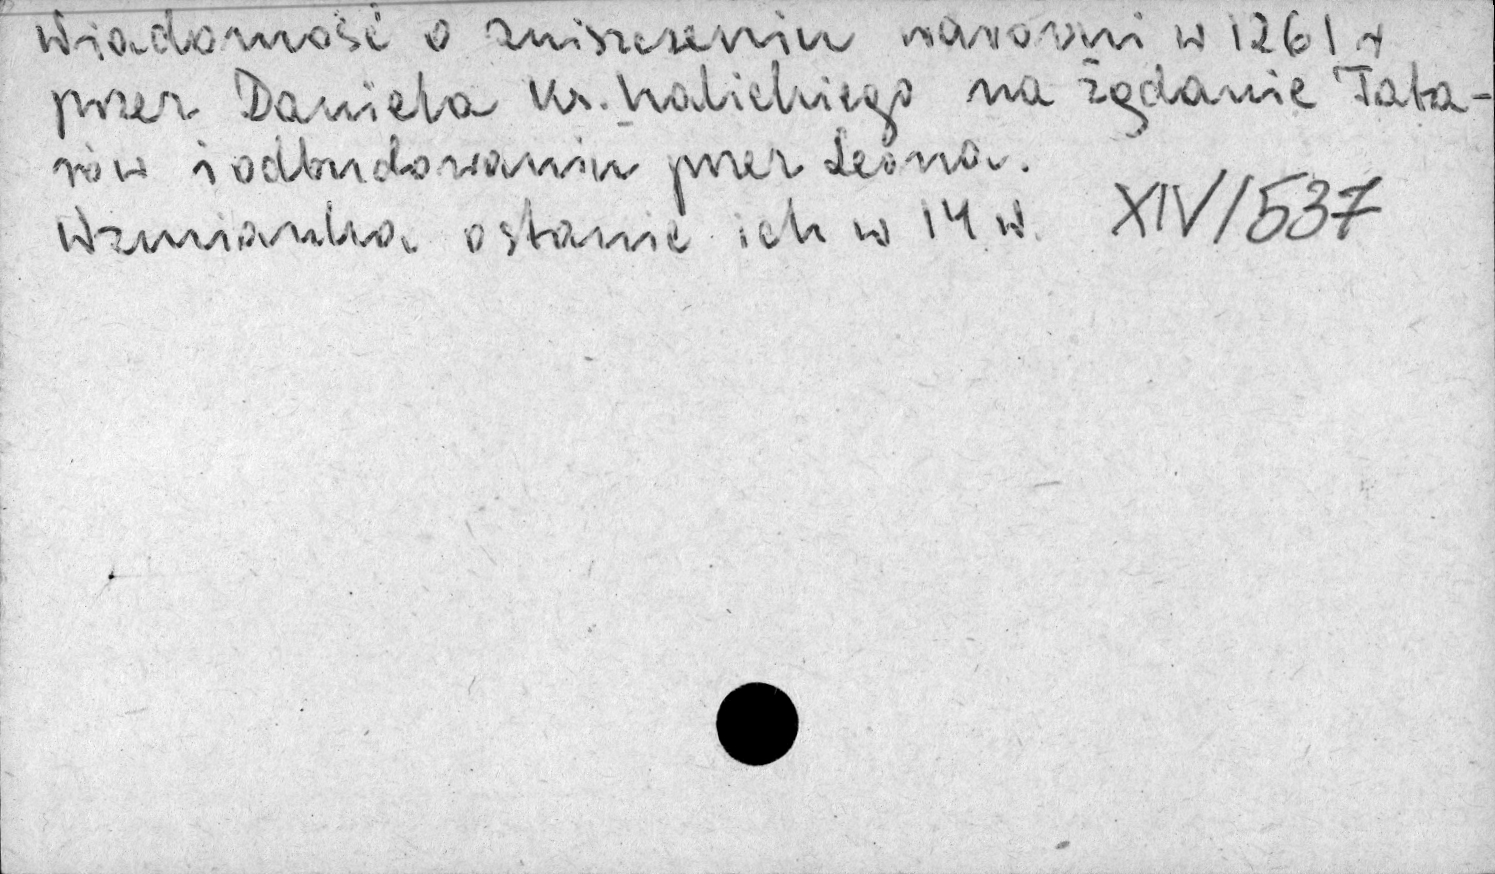 Wiadomość o zniszczeniu warowni w 1261 r
przez Daniela Ks. halickiego na żądanie Tata-
rów i odbudowaniu przez Leona.
Wzmianka o stanie ich w 14 w. XIV/537